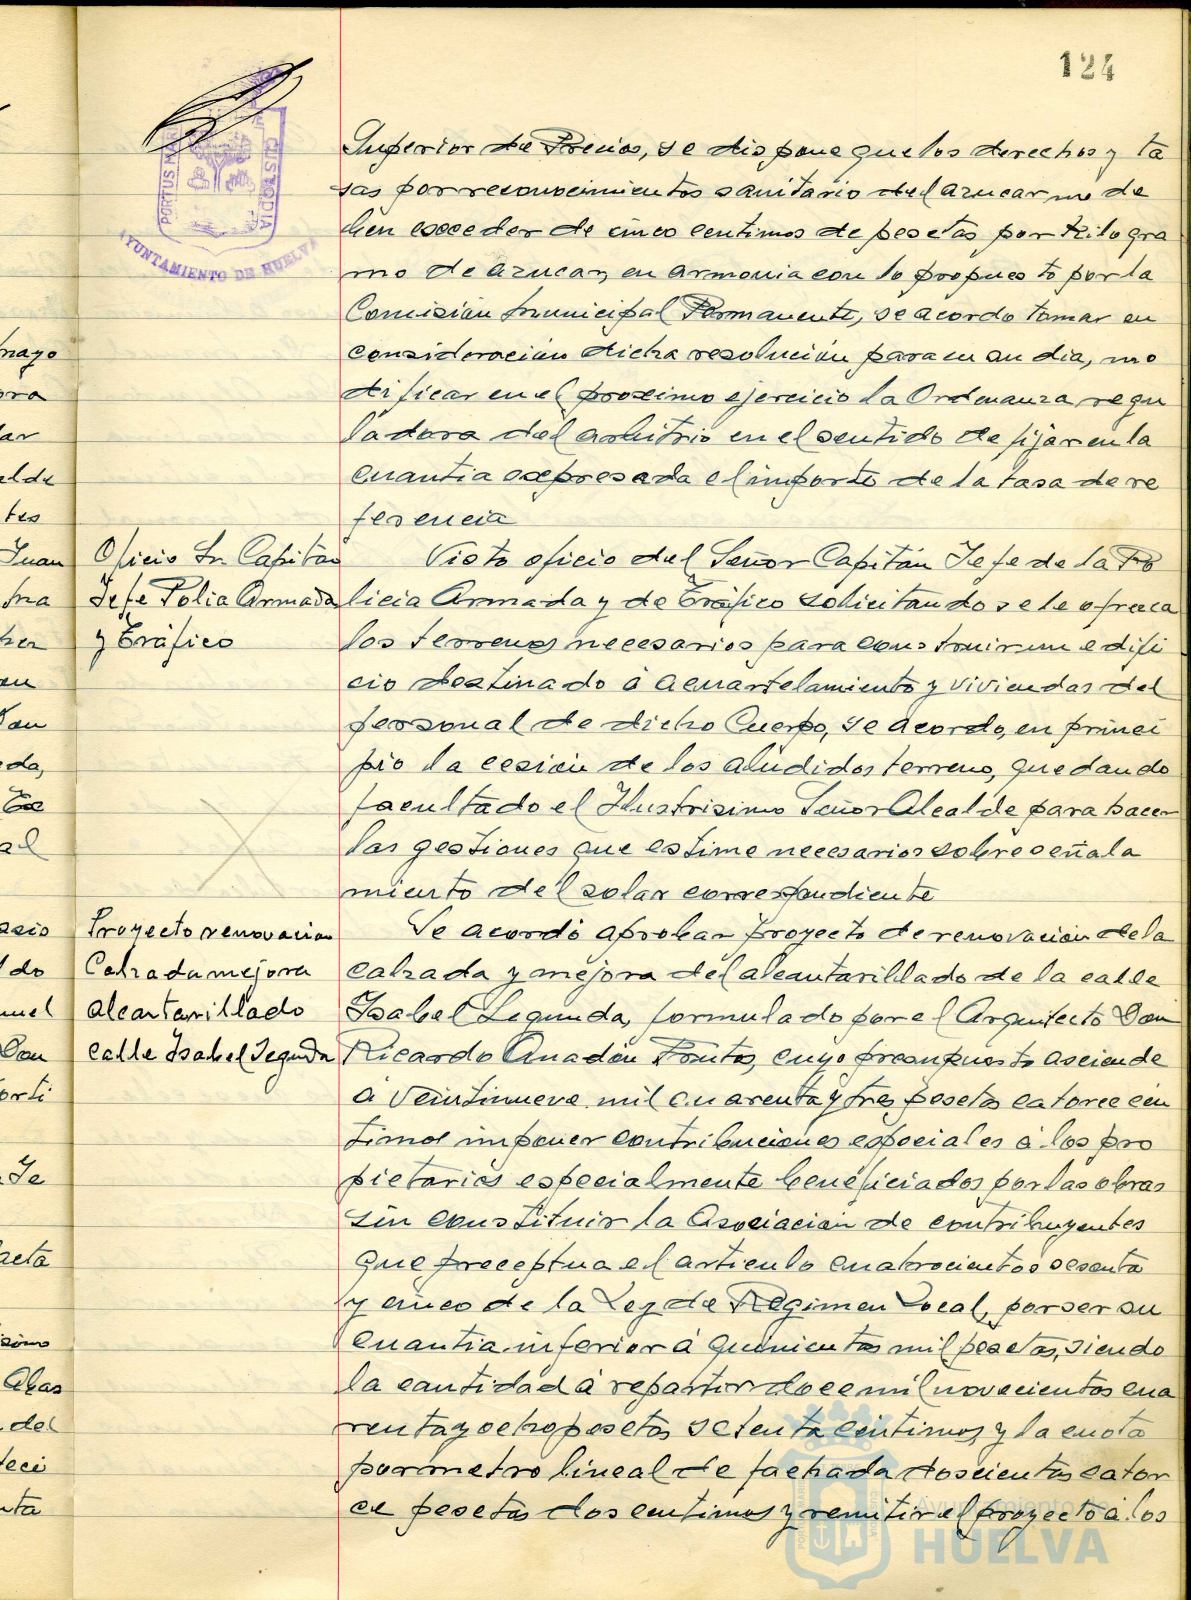 124
PORTUS MARIS
CUSTODIA
AYUNTAMIENTO DE HUELVA
Superior de Precios, se dispone que los derechos y ta
sas por reconocimientos sanitario del azucar no de
ben exceder de cinco centimos de pesetas por kilogra
mo de azucar, en armonia con lo propuesto por la
Comisión Municipal Permanente, se acordo tomar en
consideración dicha resolución para en su dia, mo
dificar en el proximo ejercicio la Ordenanza regu
ladora del arbitrio en el sentido de fijar en la
cuantia expresada el importe de la tasa de re
ferencia
Oficio Sr. Capitan
Jefe Polia Armada
y Tráfico
Visto oficio del Señor Capitán Jefe de la Po
licia Armada y de Tráfico solicitando se le ofrezca
los terrenos necesarios para construir un edifi
cio destinado á acuartelamiento y viviendas del
personal de dicho Cuerpo, se acordo, en princi
pio la cesión de los aludidos terreno, quedando
facultado el Ilustrisimo Señor Alcalde para hacer
las gestiones que estime necesarios sobre señala
miento del solar correspondiente
Proyecto renovacion
Calzada mejora
alcantarillado
calle Isabel Segunda
Se acordó aprobar proyecto de renovación de la
calzada y mejora del alcantarillado de la calle
Isabel Segunda, formulado por el Arquitecto Don
Ricardo Anadón Frutos, cuyo presupuesto asciende
á veintinueve mil cuarenta y tres pesetas catorce cén
timos imponer contribuciones especiales á los pro
pietarios especialmente beneficiados por las obras
sin constituir la Asociación de contribuyentes
que preceptua el articulo cuatrocientos sesenta
y cinco de la Ley de Régimen Local, por ser su
cuantia inferior á quinientas mil pesetas, siendo
la cantidad á repartir doce mil novecientos cua
renta y ocho pesetas setenta céntimos, y la cuota
por metro lineal de fachada doscientas cator
ce pesetas dos centimos y remitir el proyecto á los
Ayuntamiento de
HUELVA
mayo
ora
lar
alde
tes
Juan
en
eda,
al
do
nuel
Don
orti
Je
acta
Abas
del
teci
nta